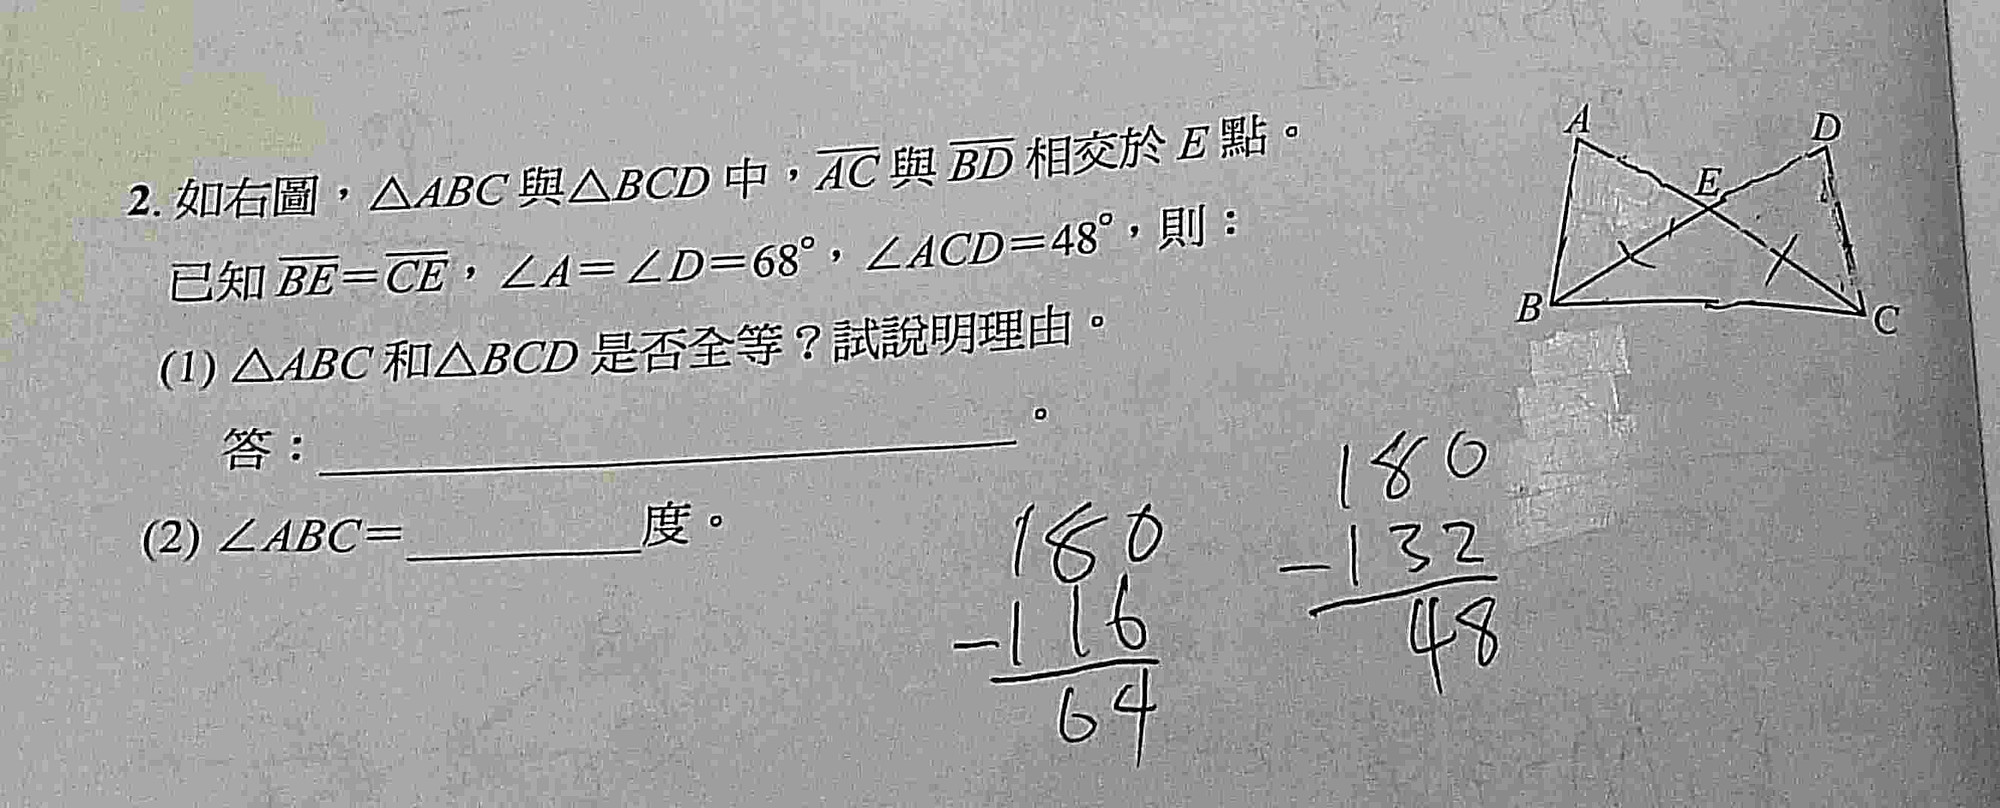 2. 如右圖，△ABC與△BCD中，AC與BD相交於E點。
已知BE=CE，∠A=∠D=68°，∠ACD=48°，則：
(1) △ABC和△BCD是否全等？試說明理由。
答：________________。
(2) ∠ABC=________度。
A
D
E
B
C
180
-116
64
180
-132
48